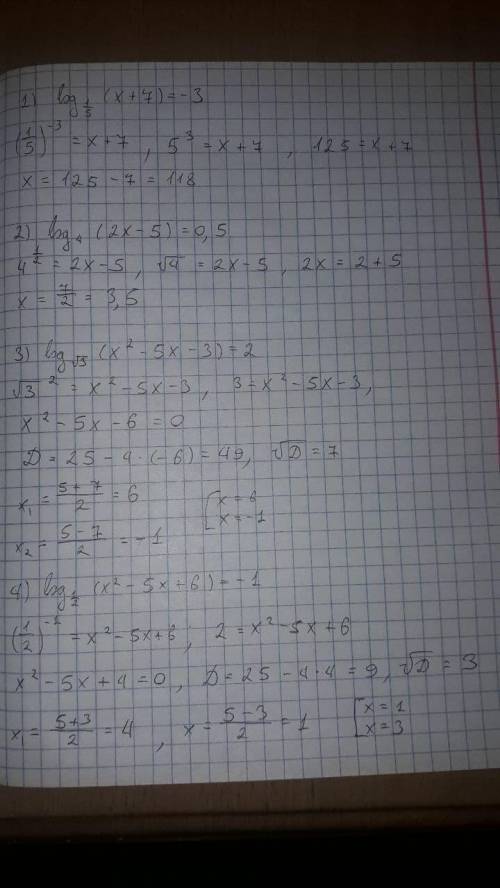 1) log_{1/5} (x+7) = -3
(1/5)^{-3} = x+7 , 5^3 = x+7 , 125 = x+7
x = 125 - 7 = 118
2) log_4 (2x-5) = 0,5
4^{1/2} = 2x-5 , √4 = 2x-5 , 2x = 2+5
x = 7/2 = 3,5
3) log_{√3} (x^2 - 5x - 3) = 2
√3^2 = x^2 - 5x - 3 , 3 = x^2 - 5x - 3 ,
x^2 - 5x - 6 = 0
D = 25 - 4·(-6) = 49, √D = 7
x_1 = (5+7)/2 = 6 [x = 6
x_2 = (5-7)/2 = -1 x = -1
4) log_{1/2} (x^2 - 5x + 6) = -1
(1/2)^{-1} = x^2 - 5x + 6 , 2 = x^2 - 5x + 6
x^2 - 5x + 4 = 0 , D = 25 - 4·4 = 9, √D = 3
x_1 = (5+3)/2 = 4 , x = (5-3)/2 = 1 [x = 1
x = 3